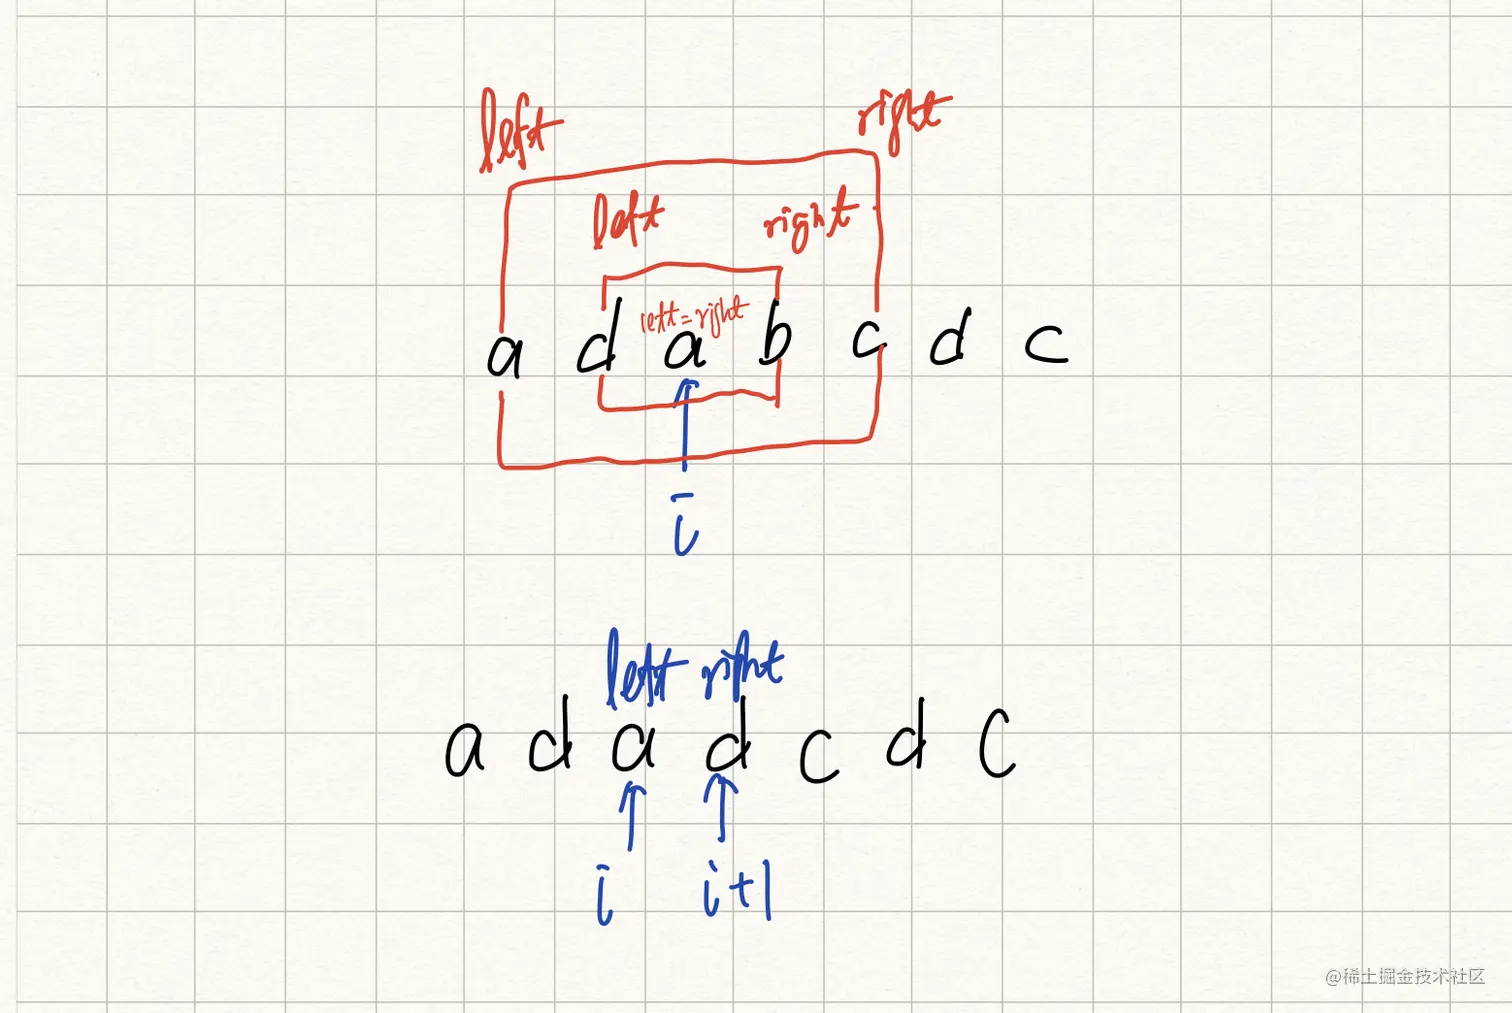 left right
left right
left=right
a d a b c d c
i
left right
a d a d c d c
i i+1
@稀土掘金技术社区